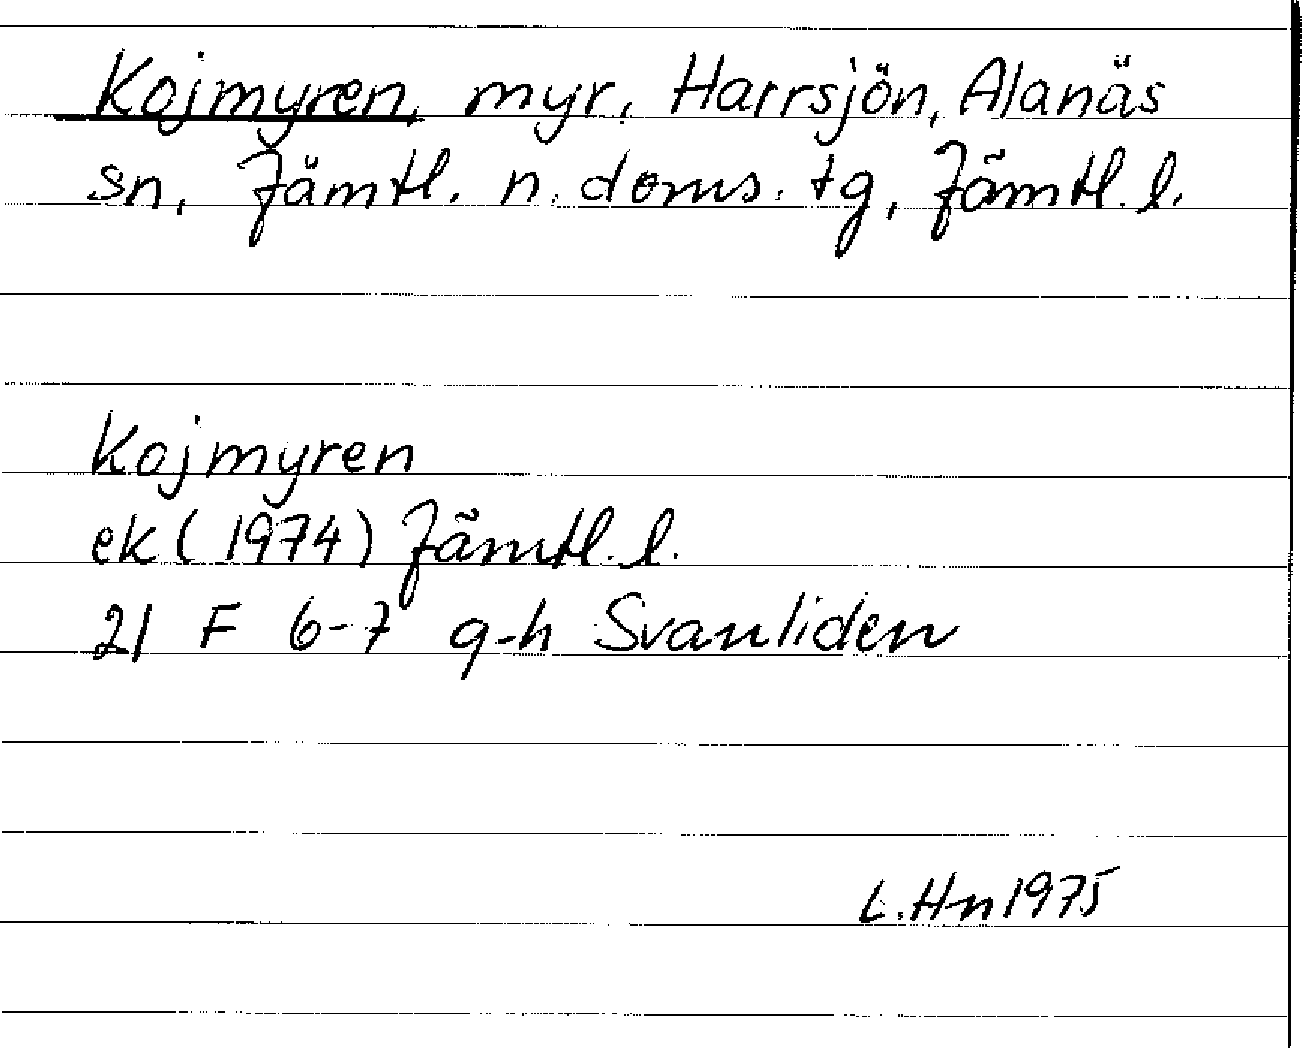 Kojmyren, myr, Harrsjön, Alanäs
sn, Jämtl. n. doms. tg, Jämtl. l.
Kojmyren
ek (1974) Jämtl. l.
21 F 6-7 g-h Svanliden
L. Hn 1975